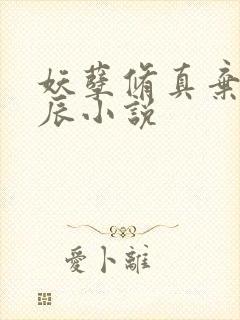 妖孽脩真棄
辰小說
愛卜離